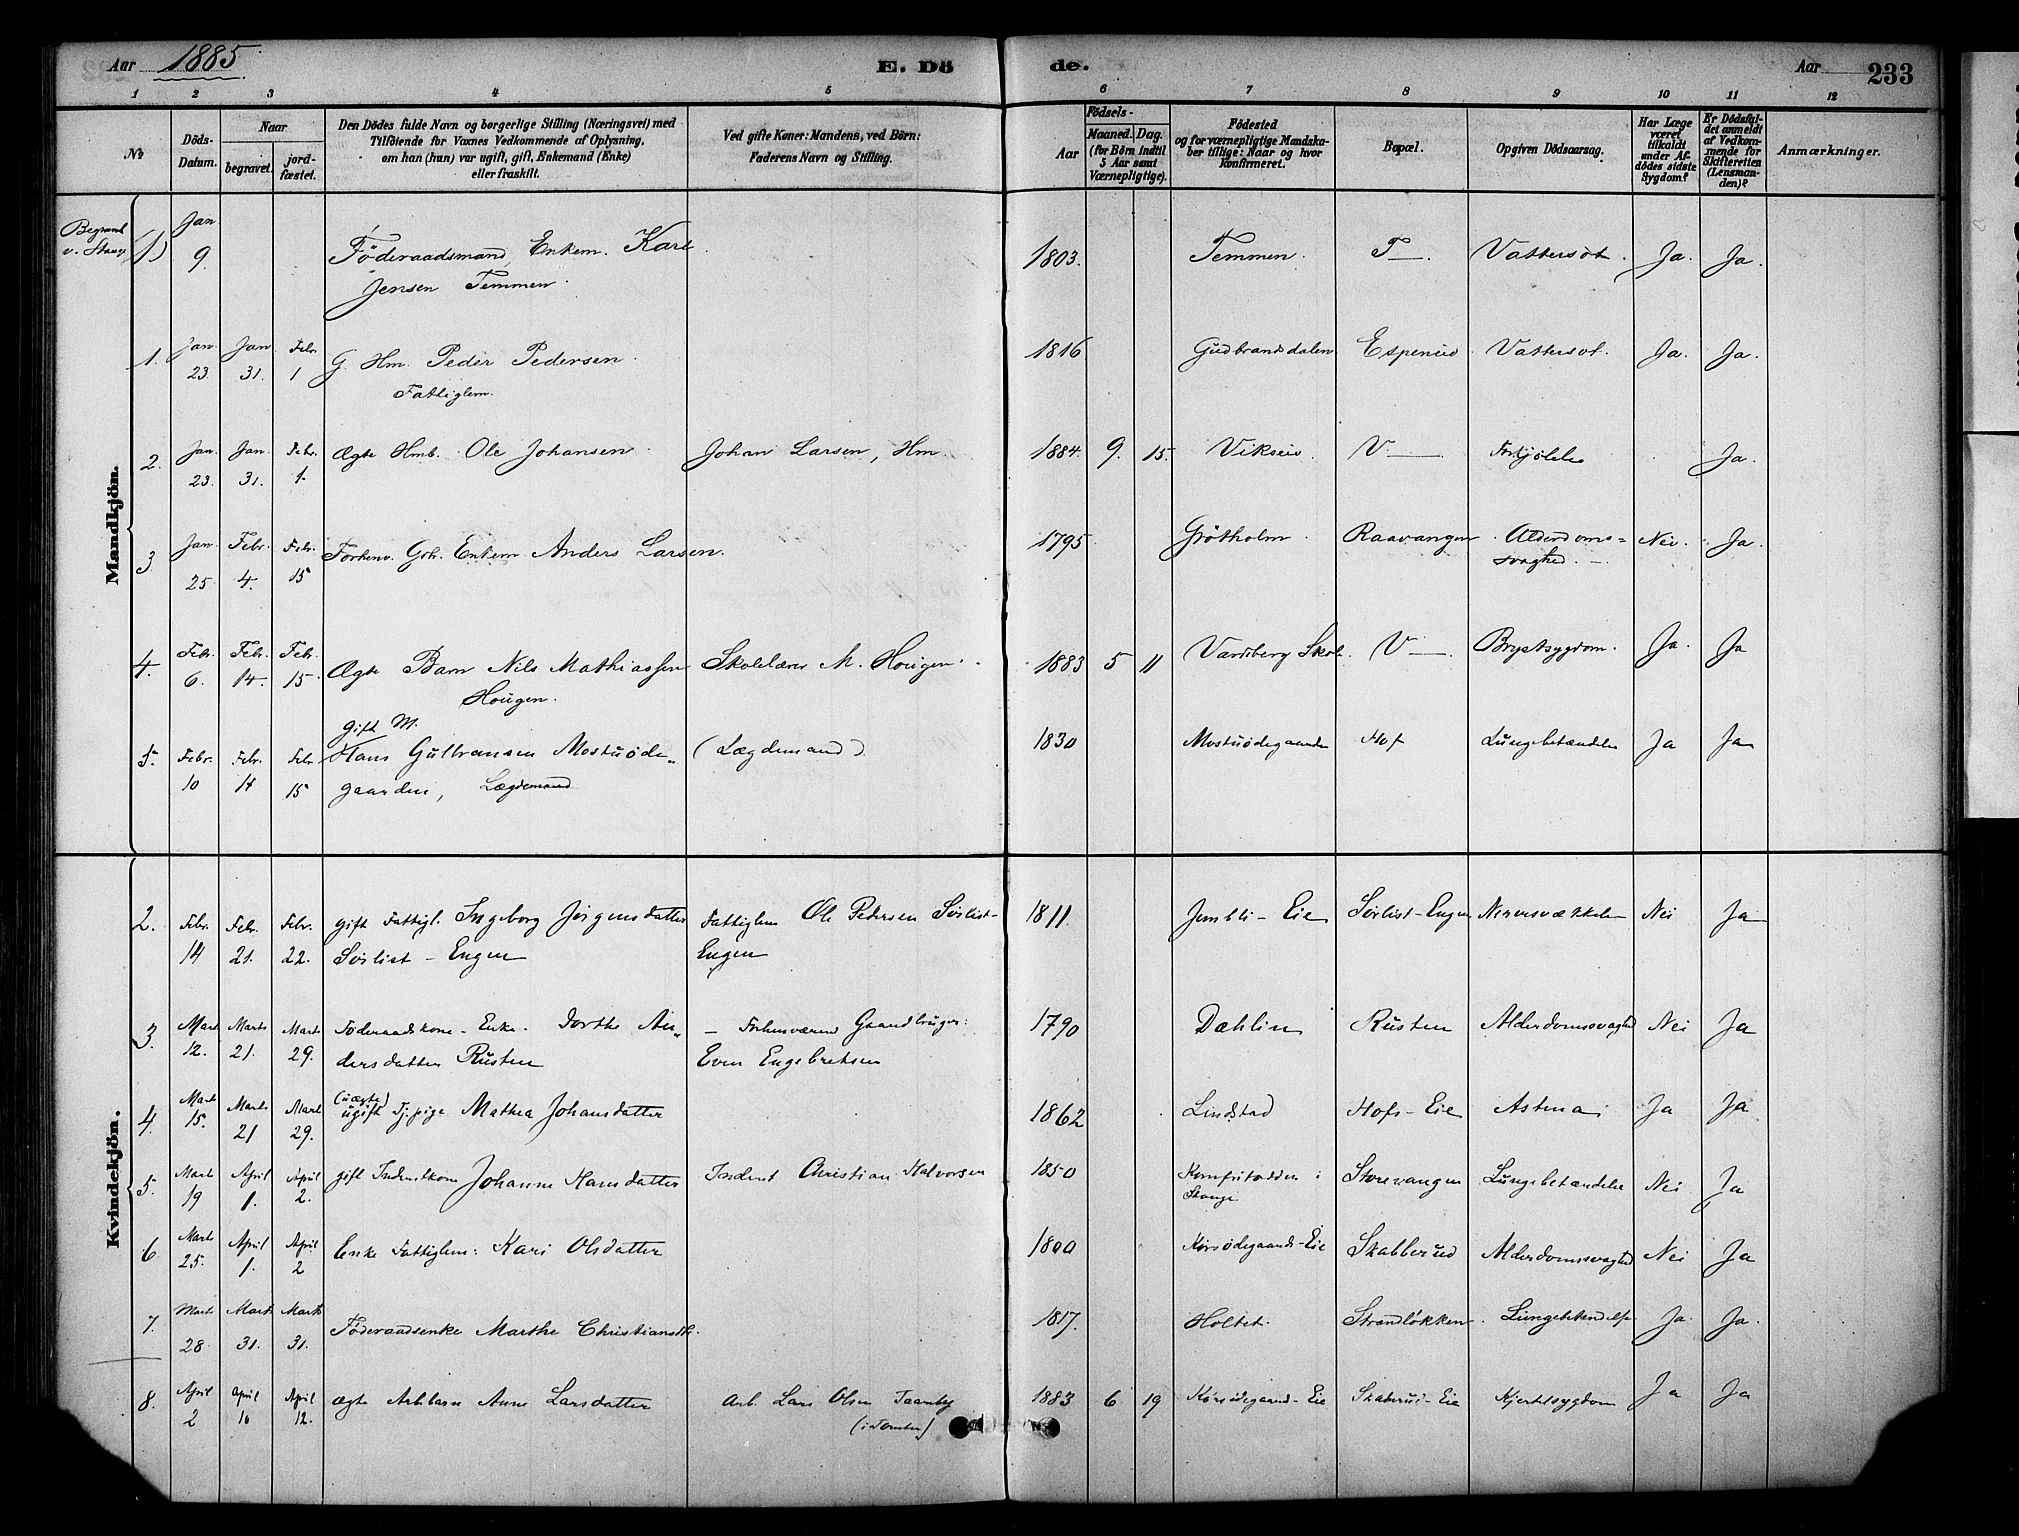 Aar 1885.
E. Dö
de.
Aar 233
1 2 3 4 5 6 7 8 9 10 11 12
No
Döds-Datum.
Naar
begravet.
jord-fæstet.
Den Dödes fulde Navn og borgerlige Stilling (Næringsvei) med
Tilföiende for Voxnes Vedkommende af Oplysning,
om han (hun) var ugift, gift, Enkemand (Enke)
eller fraskilt.
Ved gifte Koner: Mandens, ved Børn:
Faderens Navn og Stilling.
Födsels-
Aar
Maaned. Dag.
(for Børn indtil
5 Aar samt
Værnepligtige).
Födested
og for værnepligtige Mandska-
ber tillige: Naar og hvor
konfirmeret.
Bopæl.
Opgiven Dödsaarsag.
Har Læge
været
tilkaldt
under Af-
dödes sidste
Sygdom?
Er Dödsfal-
det anmeldt
af Vedkom-
mende for
Skifteretten
(Lensman-
den)?
Anmærkninger.
Mandkjön.
(1) Jan 9. Föderaadsmand, Enkem. Karl 1803. Temmen. T—. Vattersot. Ja. Ja.
Jensen Temmen.
1. Jan. 23 Jan 31. Febr. 1 G. Hm. Peder Pedersen. 1816 Gudbrandsdalen Espenud Vattersot. Ja. Ja.
Fattiglem.
2. Jan. 23. Jan. 31. Febr. 1. Ægte Hmb. Ole Johansen. Johan Larsen, Hm. 1884. 9. 15. Vikseie V— Forkjölelse Ja.
3 Jan. 25 Febr. 4. Febr. 15 Forhenv. Gbr. Enkem Anders Larsen. 1795 Grötholm Raavangen Alderdoms= Nei. Ja.
svaghed. —
4. Febr. 6. Febr. 14. Febr. 15 Ægte Barn Nils Mathiassen Skolelærer M. Hougen. 1883 5 11 Vardberg Skole V— Brystsygdom. Ja. Ja
Hougen.
gift M.
5. Febr. 10 Febr. 14 Febr 15 Hans Gulbransen Mostuöde„ (Lægdemand) 1830 Mostuödegaarden Hof Lungebetændelse Ja Ja
gaarden, Lægdemand
Kvindekjön.
2. Febr. 14 Febr. 21. Febr. 22. gift Fattigl. Ingeborg Jörgensdatter Fattiglem Ole Pedersen Sörlist- 1811 Jembli-Eie Sörlist-Engen Nervesvækkelse Nei Ja
Sörlist-Engen Engen
3. Mart 12. Marts 21. Mart 29. Föderaadskone-Enke. Dorthe An„ - Forhenværend Gaardbruger: 1790 Dæhlin Rusten Alderdomssvaghed Nei Ja
dersdatter Rusten Even Engebretsen
4. Mart 15. Marts 21 Mart 29. (uægte) ugift Tj.pige Mathea Johansdatter 1862 Lindstad Hofs-Eie Astma Ja Ja
5. Mart 19 April 1. April 2. gift Inderstkone Johanne Hansdatter Inderst Christian Halvorsen 1850 i Storevangen Lungebetændelse Nei Ja
Stange
6. Marts 25. April 1. April 2 Enke Fattiglem: Kari Olsdatter 1800 Korsödegaards-Eie Skabberud Alderdomssvaghed Nei Ja
7. Marts 28 Marts 31. Marts 31. Föderaadsenke Marthe Christiansdt. 1817. Holtet. Strandlökken. Lungebetændelse Ja. Ja.
8. April 2 April 10 April 12. ægte Arb.barn Anne Larsdatter Arb. Lars Olsen Taarnby 1883 6 19 Korsödegaard-Eie Skaberud-Eie Kjertelsygdom Ja Ja